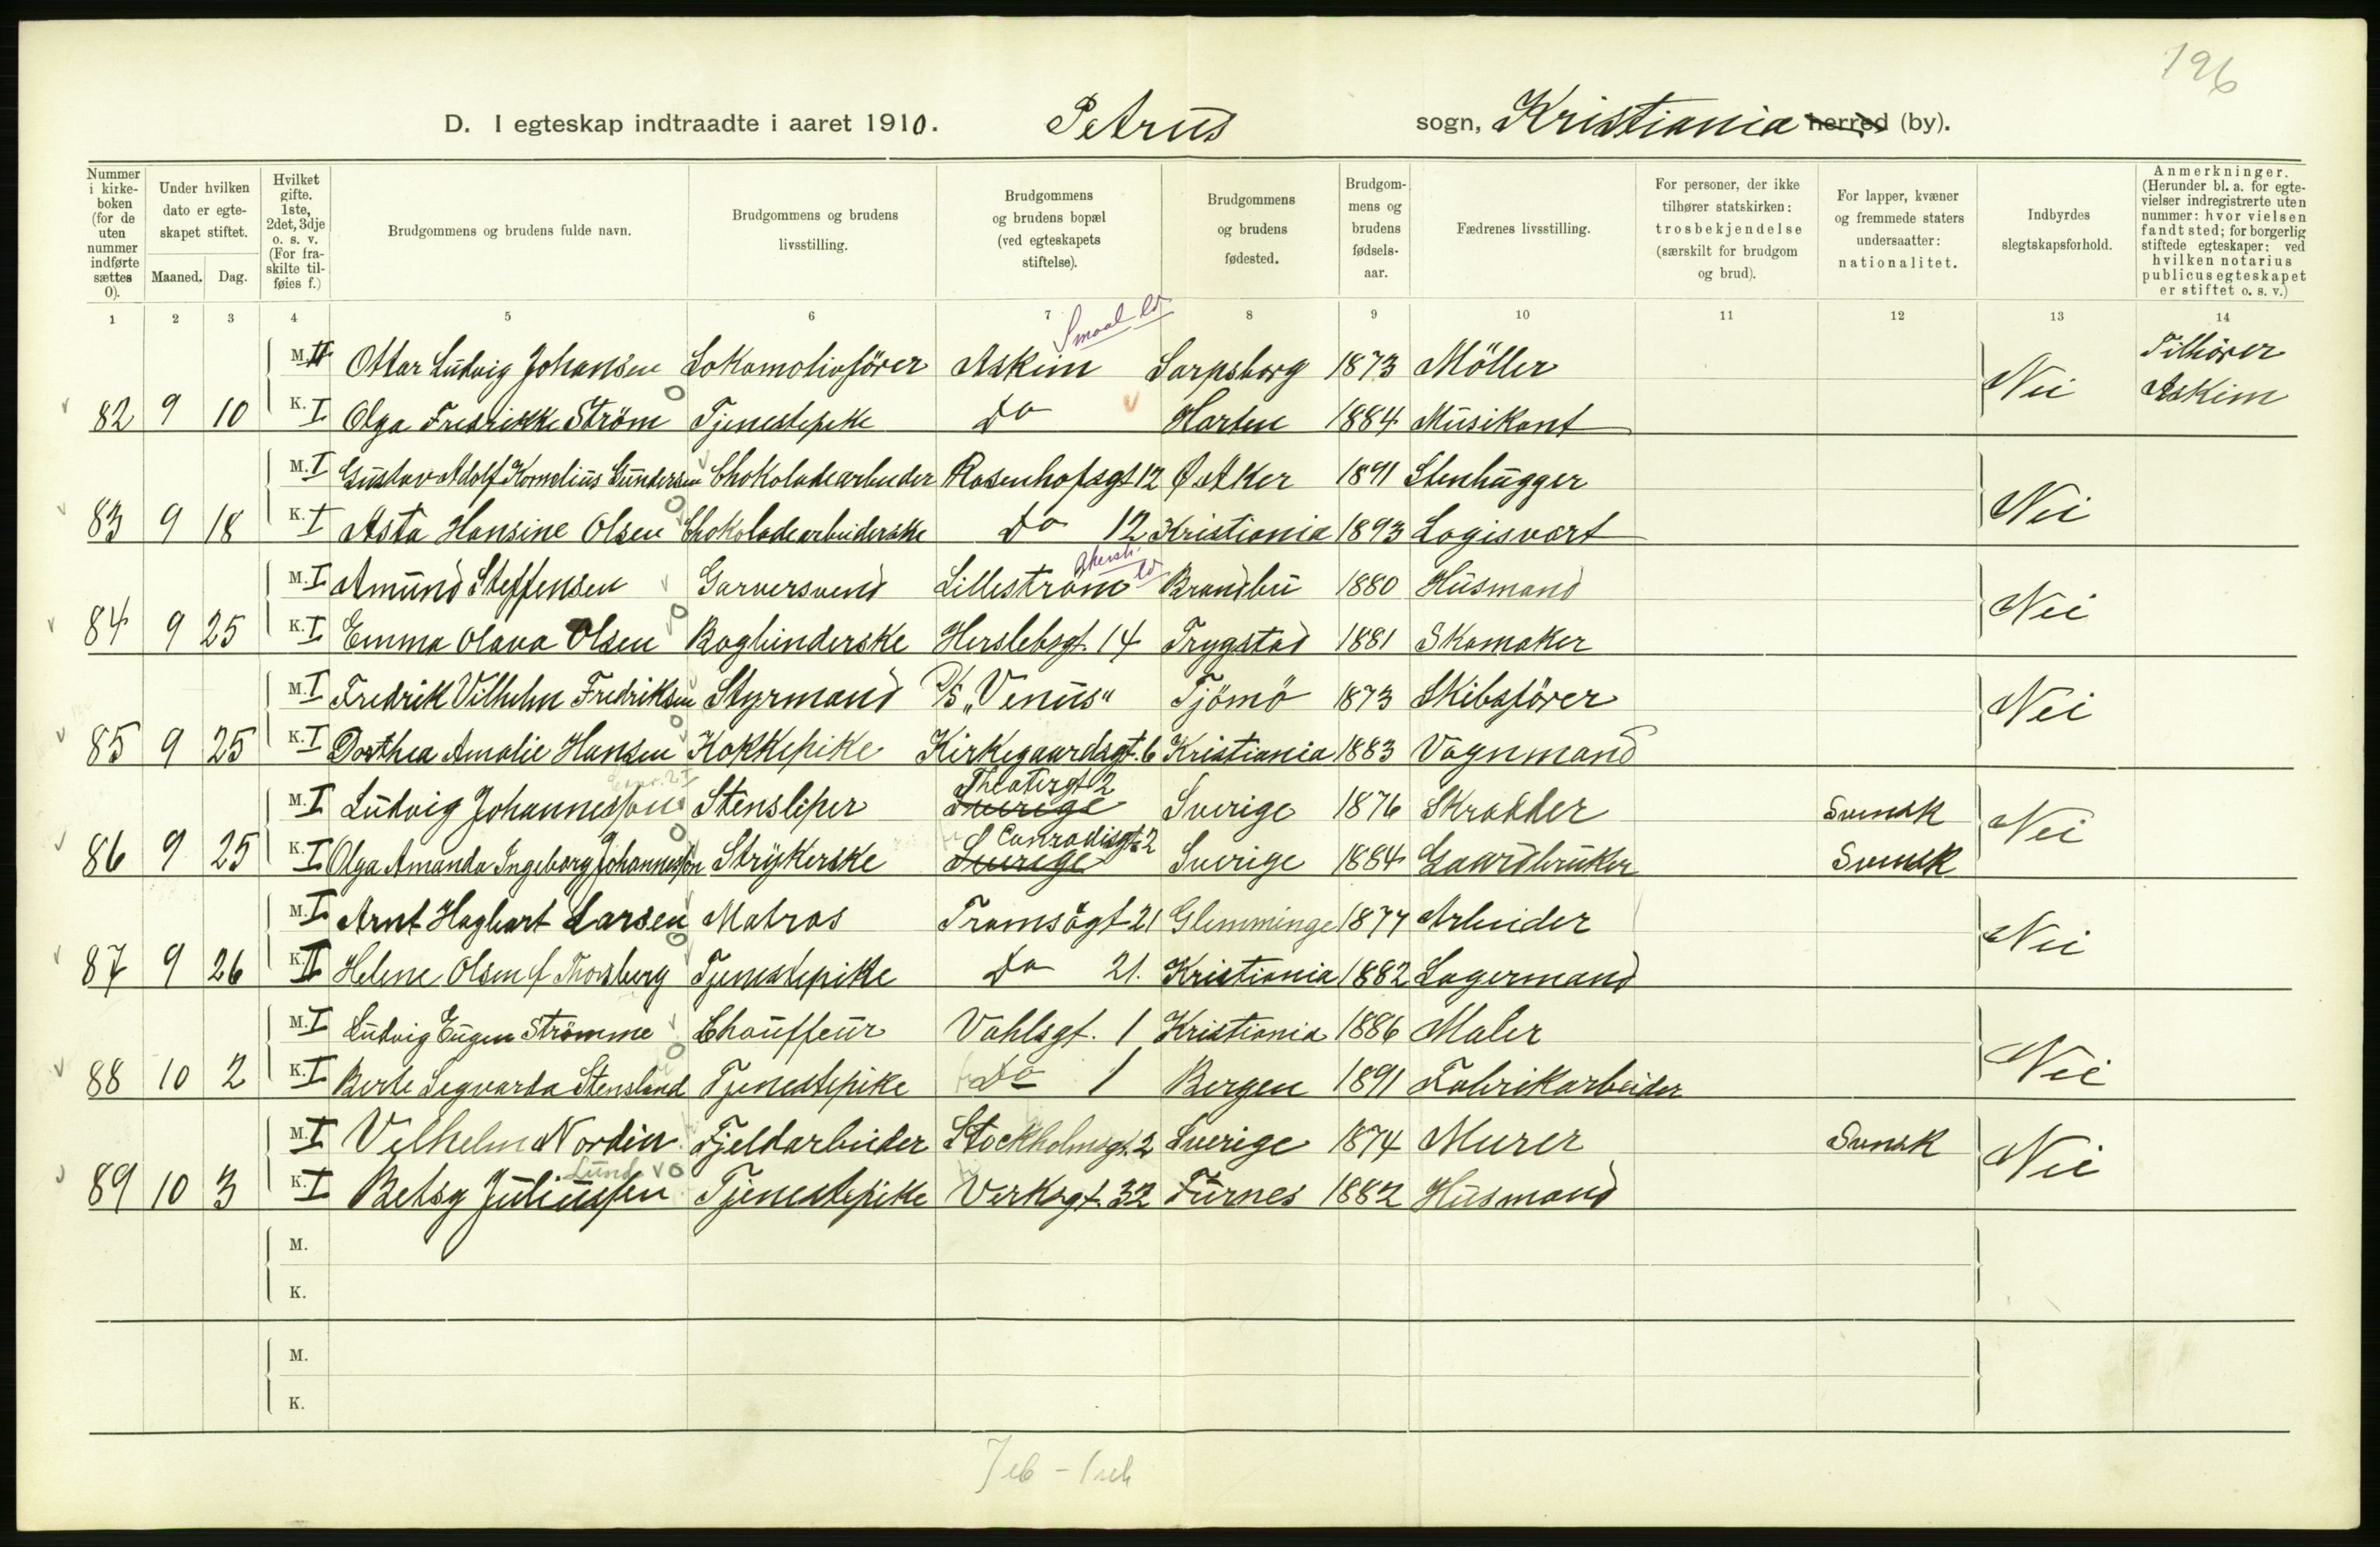 196
D. I egteskap indtraadte i aaret 1910. Petrus sogn, Kristiania herred (by).
Nummer i kirkeboken (for de uten nummer indførte sættes 0).
Under hvilken dato er egteskapet stiftet.
Maaned. Dag.
Hvilket gifte. 1ste, 2det, 3dje o. s. v. (For fraskilte tilføies f.)
Brudgommens og brudens fulde navn.
Brudgommens og brudens livsstilling.
Brudgommens og brudens bopæl (ved egteskapets stiftelse).
Brudgommens og brudens fødested.
Brudgommens og brudens fødselsaar.
Fædrenes livsstilling.
For personer, der ikke tilhører statskirken: trosbekjendelse (særskilt for brudgom og brud).
For lapper, kvæner og fremmede staters undersaatter: nationalitet.
Indbyrdes slegtskapsforhold.
Anmerkninger. (Herunder bl. a. for egtevielser indregistrerte uten nummer: hvor vielsen fandt sted; for borgerlig stiftede egteskaper: ved hvilken notarius publicus egteskapet er stiftet o. s. v.)
1 2 3 4 5 6 7 8 9 10 11 12 13 14
Smaal
M. II Ottar Ludvig Johansen Lokomotivfører Askim Sarpsborg 1873 Möller Tilhører
82 9 10 K. I Olga Fredrikke Ström Tjenestepike do Horten 1884 Musikant Nei Askim
M. I Gustav Adolf Kornelius Gundersen Chokoladearbeider Rosenhofsgt 12 Ø Aker 1891 Stenhugger
83 9 18 K. I Asta Hansine Olsen Chokoladearbeiderske do 12 Kristiania 1893 Logisvært Nei
Akersh.
M. I Amund Steffensen Garversvend Lilleström Brandbu 1880 Husmand
84 9 25 K. I Emma Olava Olsen Bogbinderske Herslebsgt. 14 Trygstad 1881 Skomaker Nei
M. I Fredrik Vilhelm Fredriksen Styrmand D/S „Venus" Tjömö 1873 Skibsfører
85 9 25 K. I Dorthea Amalie Hansen Kokkepike Kirkegaardsgt. 6 Kristiania 1883 Vognmand Nei
Theatergt 2
M. I Ludvig Johannesson Stensliper Sverige Sverige 1876 Skrædder Svensk
Conradisgt 2
86 9 25 K. I Olga Amanda Ingeborg Johannesson Strykerske Sverige Sverige 1884 Gaardbruker Svensk Nei
M. I Arnt Hagbart Larsen Matros Tromsögt 21 Glemminge 1877 Arbeider
87 9 26 K. II Helene Olsen f Thorsberg Tjenestepike do 21. Kristiania 1882 Lagermand Nei
M. I Ludvig Eugen Strömme Chauffeur Vahlsgt. 1 Kristiania 1886 Maler
88 10 2 K. I Berte Segvarda Stensland Tjenestepike do 1 Bergen 1891 Fabrikarbeider Nei
M. I Vilhelm Nordin Fjeldarbeider Stockholmsgt. 2 Sverige 1874 Murer Svensk
Lund
89 10 3 K. I Betsy Juliussen Tjenestepike Verksgt. 32 Furnes 1882 Husmand Nei
M.
K.
M.
K.